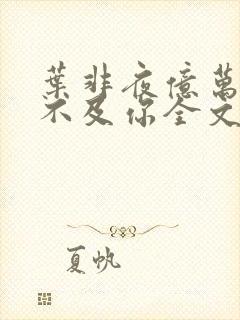 葉非夜億萬
不及你全文
夏帆